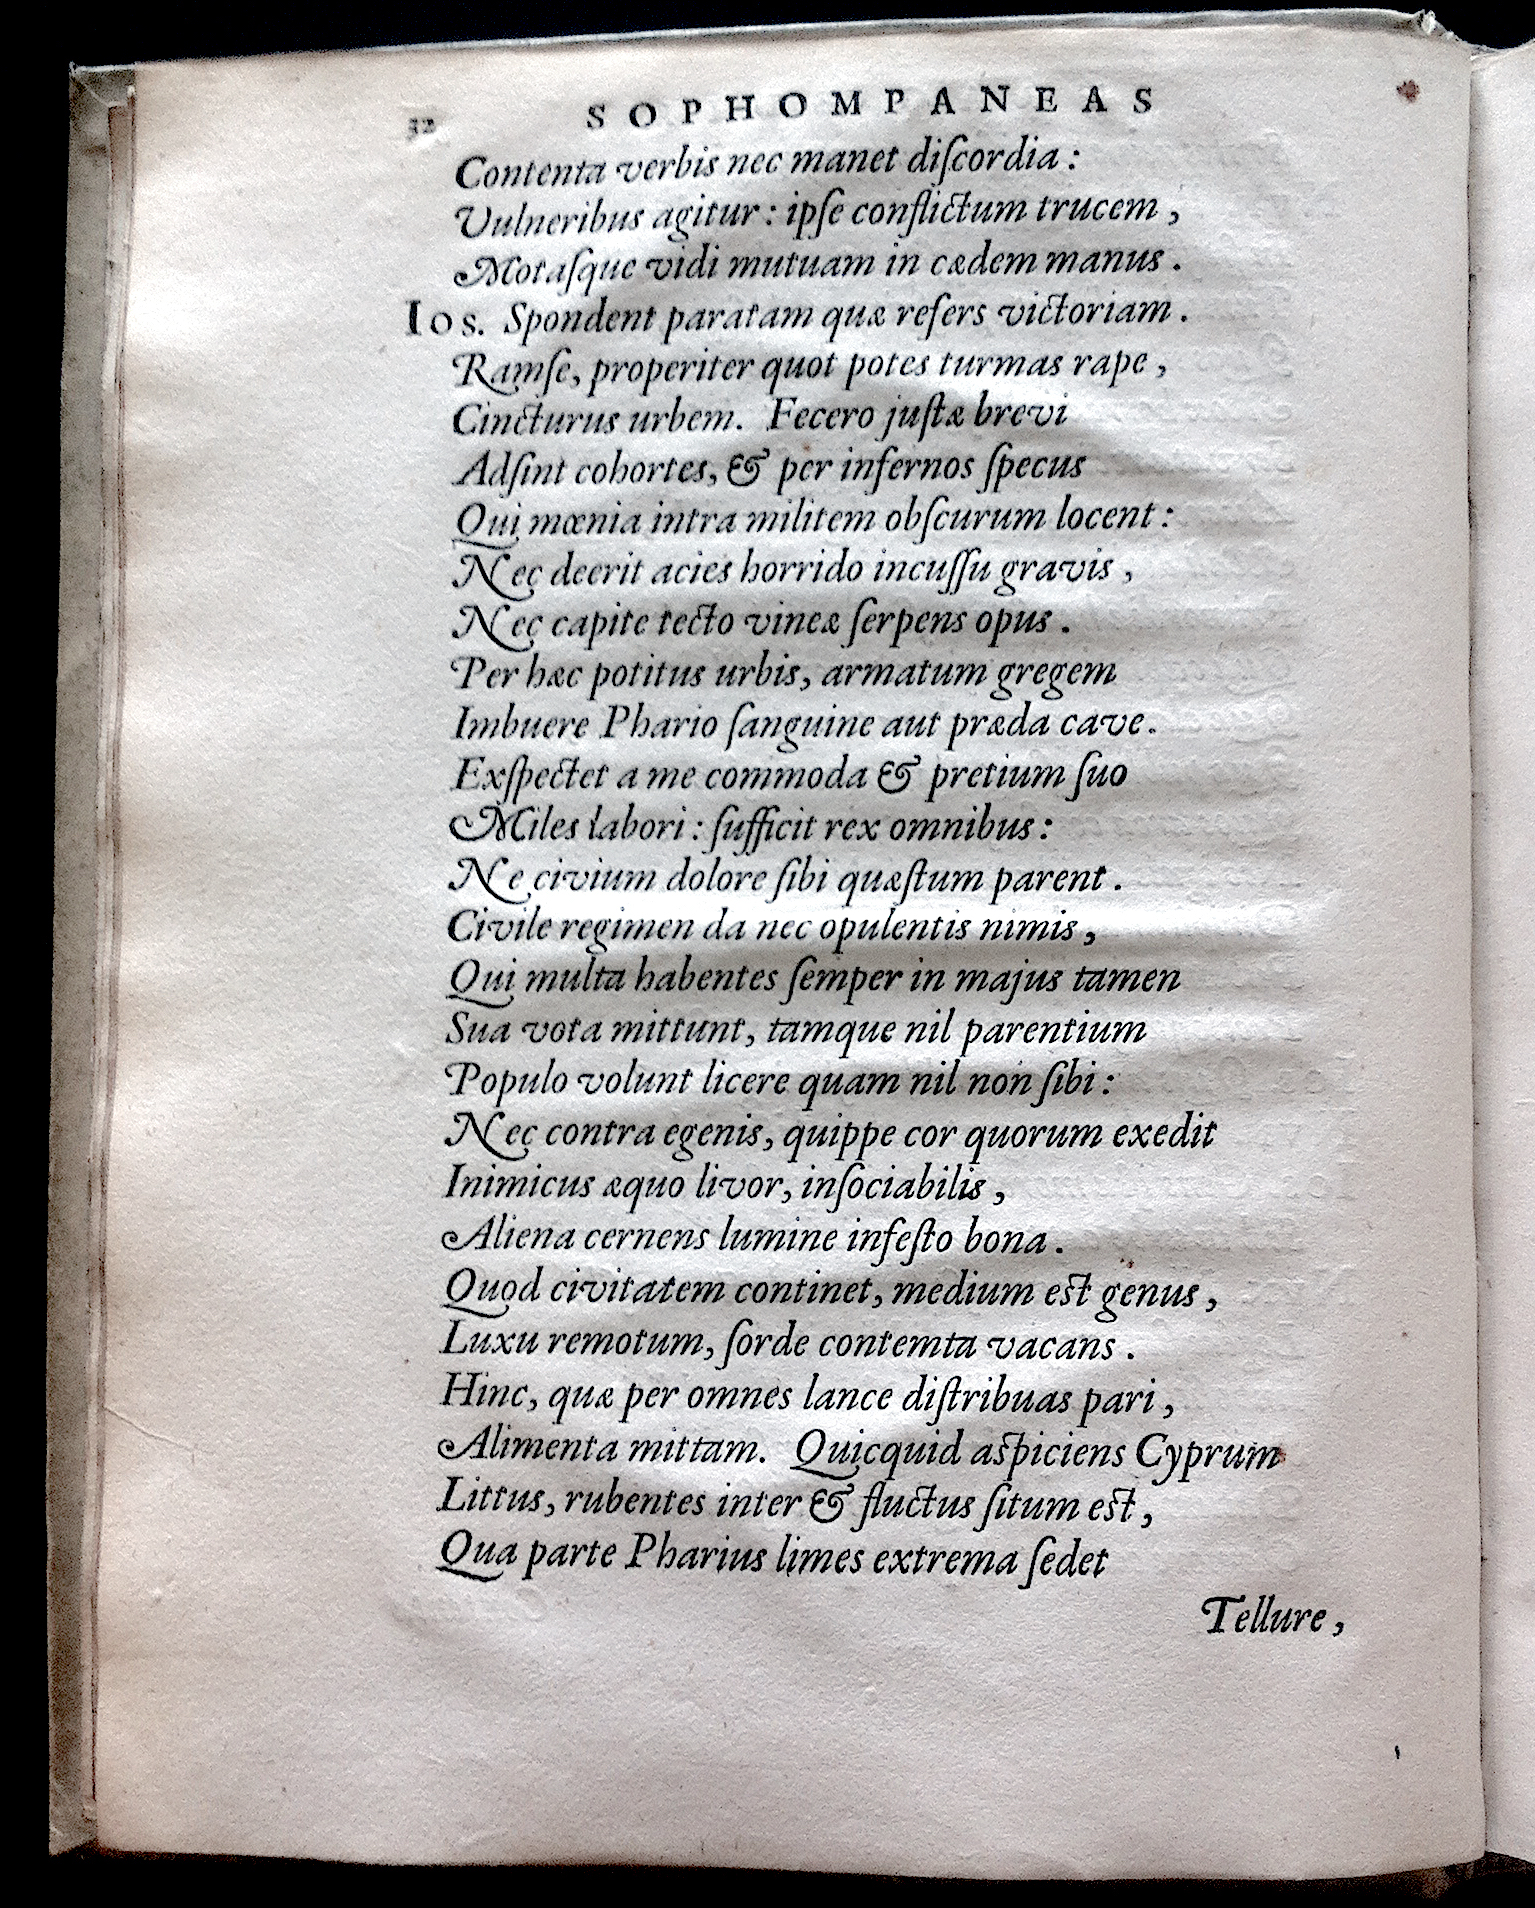 32 SOPHOMPANEAS
Contenta verbis nec manet diſcordia :
Vulneribus agitur : ipſe conflictum trucem ,
Motaſque vidi mutuam in cædem manus .
Ios. Spondent paratam quæ refers victoriam .
Ramſe, properiter quot potes turmas rape ,
Cincturus urbem. Fecero juſtæ brevi
Adſint cohortes, & per infernos ſpecus
Qui mœnia intra militem obſcurum locent :
Nec deerit acies horrido incuſſu gravis ,
Nec capite tecto vineæ ſerpens opus .
Per hæc potitus urbis, armatum gregem
Imbuere Phario ſanguine aut præda cave.
Exſpectet a me commoda & pretium ſuo
Miles labori : ſufficit rex omnibus :
Ne civium dolore ſibi quæſtum parent .
Civile regimen da nec opulentis nimis ,
Qui multa habentes ſemper in majus tamen
Sua vota mittunt, tamque nil parentium
Populo volunt licere quam nil non ſibi :
Nec contra egenis, quippe cor quorum exedit
Inimicus æquo livor, inſociabilis ,
Aliena cernens lumine infeſto bona .
Quod civitatem continet, medium est genus ,
Luxu remotum, ſorde contemta vacans .
Hinc, quæ per omnes lance diſtribuas pari ,
Alimenta mittam. Quicquid aspiciens Cyprum
Littus, rubentes inter & fluctus ſitum est ,
Qua parte Pharius limes extrema ſedet
Tellure ,